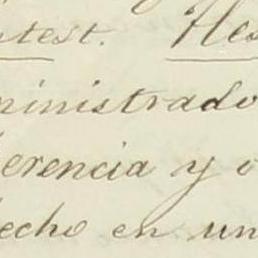 ntest. Hes
ministrado
herencia y o
hecho en un